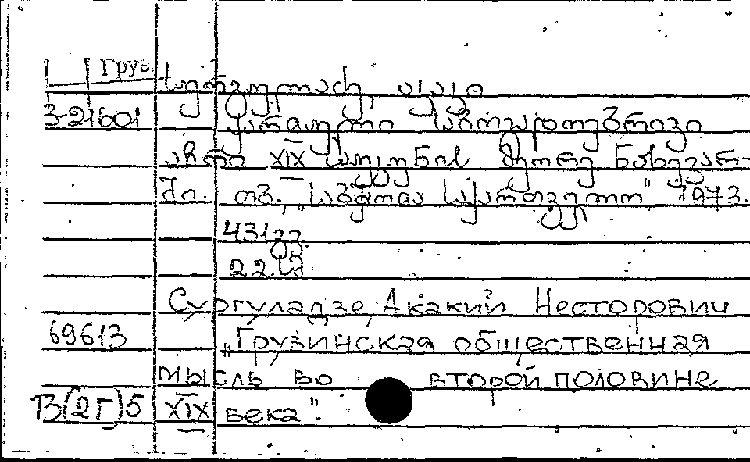 Груз.
სურგულაძე, აკაკი
3-21601 ქართული საზოგადოებრივი
აზრი XIX საუკუნის მეორე ნახევარ-
ში. თბ., "საბჭოთა საქართველო", 1973.
431 გვ.
22 სმ
Сургуладзе, Акакий Несторович
69613 "Грузинская общественная
мысль во второй половине
13(2Г)5 XIX века".